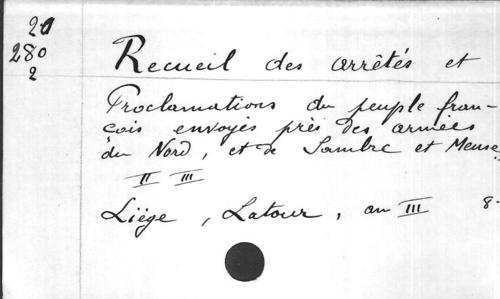 20
280
2
Recueil des arrêtés et
Proclamations du peuple fran-
çois envoyés près des armées
du Nord, et de Sambre et Meuse.
II III
Liége, Latour, an III 8.